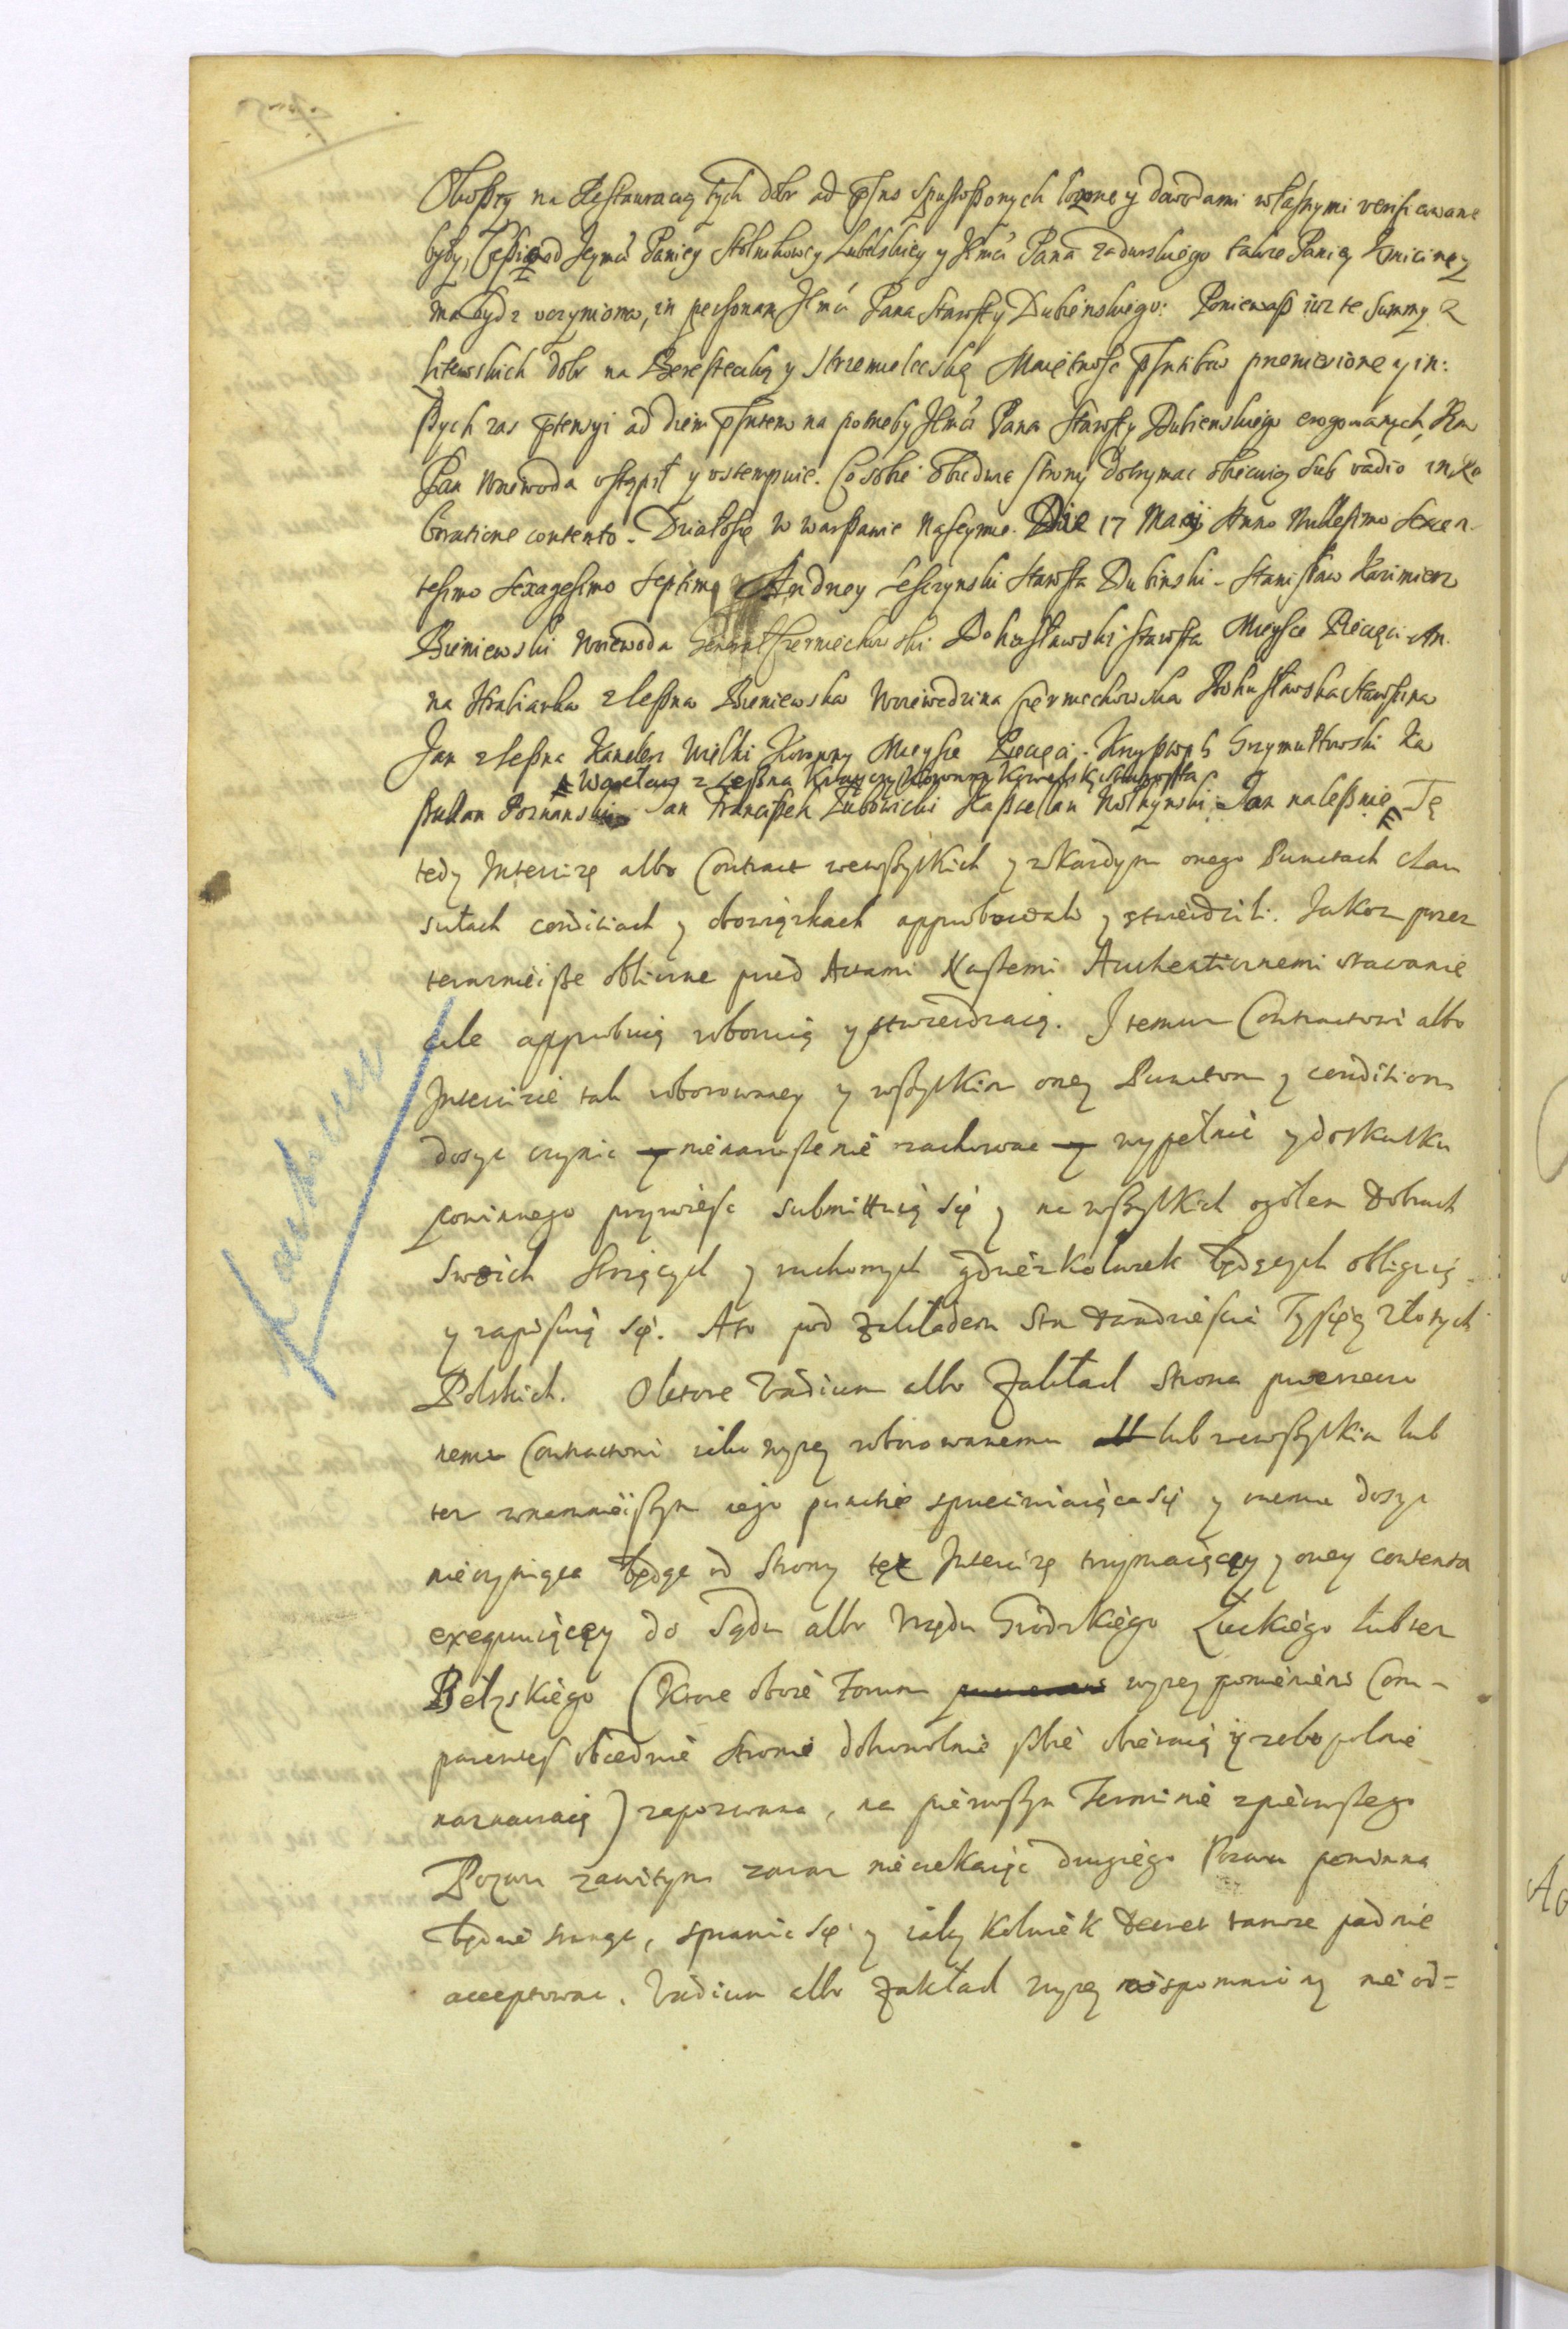 Oboszły na Restauracyą tych dobr ad pñs spustoszonych łozone y dowodami własnymi verificowane
były, Cessie od Jeymci Paniey Stolnikowey Lubelskiey y Jmci Pana Zadurskiego także Paniey
ma bydz uczyniona, in personam Jmci Pana Starosty Dubienskiego: Poniewasz iuz te Summy z
Litewskich dobr na Beresteczką y Strzemielecską Maiętnosc pñtibus przeniesione y in:
szych zas ptensyi ad diem pñtem na potrzeby Jmci Pana Starosty Dubienskiego erogowanych, Jm
Pan Woiewoda ustąpił y ustempuie. Co sobie obiedwie strony dotrzymac obiecuią sub vadio in Ro
boratione contento. Działosię w Warszawie na Seymie. Die 17 Maij Anno Millesimo Sexcen
tesimo Sexagesimo Septimo Andrzey Leszczynski Starosta Dubinski - Stanisław Kazimierz
Bieniewski Woiewoda Generał Czerniechowski Bohusławski Starosta Mieysce Pieczęci - An
na Hrabianka z Leszna Bieniewska Woiewodzina Czerniechowska Bohusławska Starostina
Jan z Leszna Kanclerz Wielki Koronny Mieysce Pieczęci - Krzysztoph Grzymułtowski Ka
# Wacław z Leszna Kraiczy Koronny Kowelski Starosta
sztellan Poznanski Jan Franciszek Lubowicki Kasztellan Wołhynski. Jan na lesznie # Tę
tedy Intercizę albo Contract wewszytkich y wkazdym onego Punctach clau
sułach conditiach y obowiązkach approbowali y stwierdzili. Jakoz przez
teraznieisze obliczne przed Actami Naszemi Authenticznemi stawanie
cale approbuią roboruią y stwierdzaią. Y temu Contractowi albo
Intercizie tak roborowaney y wszytkim oney Punctom y conditiom
dosyc czynic nienaruszenie zachowac wypełnic y do skutku
powinnego przywiesc submittuią się y na wszytkich ogółem Dobrach
swoich stoiących y ruchomych gdziezkolwiek będących obliguią
y zapisuią się. A to pod zakładem Sta Dwudziestu Tysięcy Złotych
Polskich. O ktore Vadium albo Zakład Strona przerze
nemu Contractowi iako wyzey roborowanemu lub wewszytkim lub
tez wnamnieiszym iego punctie sprzeciwiaiąca się y onemu dosyc
nieczyniąca będąc od Strony tęż Intercizę trzymaiącey y oney contenta
exequuiącey do Sądu albo Urzędu Grodzkiego Łuckiego lub tez
Bełzskiego (Ktore oboie Forum wyzey pomienieni Com-
parentes obiedwie stronie dobrowolnie sobie obieraią y zobopolnie
naznaczaią) zapozwana, na pierwszym Terminie z pierwszego
Pozwu zawitym zaraz nieczekaiąc drugiego Pozwu powinna
będzie stanąc, sprawic się y iaky kolwiek Decret tamze padnie
acceptowac. Vadium albo Zakład wyzey wspomniany nie od=